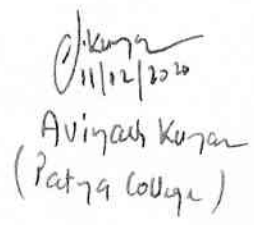 J.Kumar
11/12/2020
Avinash Kumar
(Patna College)